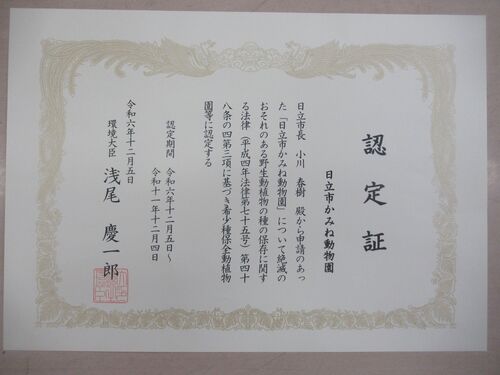 認定証
日立市かみね動物園
日立市長 小川 春樹 殿から申請のあっ
た「日立市かみね動物園」について絶滅の
おそれのある野生動植物の種の保存に関す
る法律(平成四年法律第七十五号)第四十
八条の四第三項に基づき希少種保全動植物
園等に認定する
認定期間 令和六年十二月五日～
令和十一年十二月四日
令和六年十二月五日
環境大臣 浅尾 慶一郎